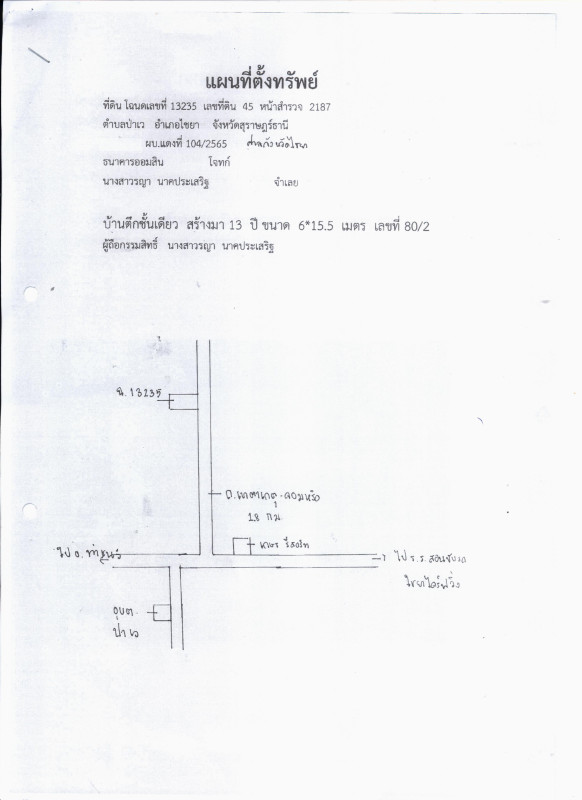 แผนที่ตั้งทรัพย์
ที่ดิน โฉนดเลขที่ 13235 เลขที่ดิน 45 หน้าสำรวจ 2187
ตำบลป่าเว อำเภอไชยา จังหวัดสุราษฎร์ธานี
ผบ.แดงที่ 104/2565
ธนาคารออมสิน โจทก์
นางสาววรญา นาคประเสริฐ จำเลย
บ้านตึกชั้นเดียว สร้างมา 13 ปี ขนาด 6*15.5 เมตร เลขที่ 80/2
ผู้ถือกรรมสิทธิ์ นางสาววรญา นาคประเสริฐ
ฉ. 13235
1.8 กม.
รีสอร์ท
ไป อ. ท่าชนะ
ไป ร.ร.
อบต.
ป่าเว